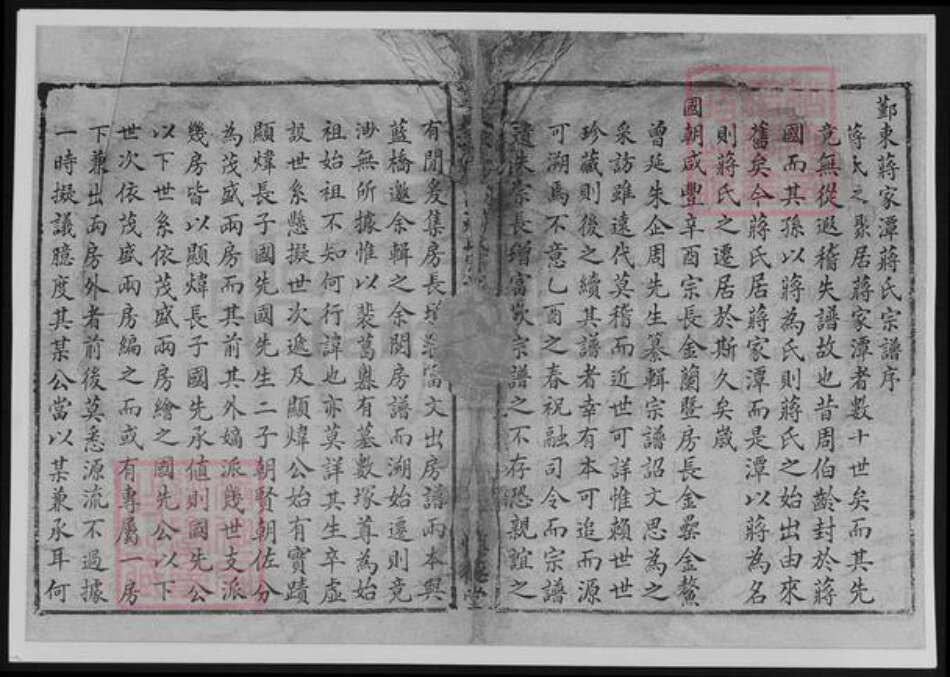 鄞東蔣家潭蔣氏宗譜序
蔣氏之聚居蔣家潭者數十世矣而其先
竟無從遐稽失譜故也昔周伯齡封於蔣
國而其孫以蔣為氏則蔣氏之始出由來
舊矣今蔣氏居蔣家潭而是潭以蔣為名
則蔣氏之遷居於斯久矣歲
國朝咸豐辛酉宗長金蘭暨房長金桼金鰲
曾延朱企周先生纂輯宗譜詔文思為之
采訪雖遠代莫稽而近世可詳惟賴世世
珍藏則後之續其譜者幸有本可追而源
可溯焉不意乙酉之春祝融司令而宗譜
遺佚宗長增富歎宗譜之不存恐親誼之
有間爰集房長增富文出房譜兩本與
藍橋邀余輯之余閱房譜而溯始遷則竟
渺無所據惟以裴葛嶴有墓數塚尊為始
祖始祖不知何行諱也亦莫詳其生卒虛
設世系懸擬世次遞及顯煒公始有實蹟
顯煒長子國先國先生二子朝賢朝佐分
為茂盛兩房而其前其外嫡派幾世支派
幾房皆以顯煒長子國先承值則國先公
以下世系依茂盛兩房繪之國先公以下
世次依茂盛兩房編之而或有專屬一房
下兼出兩房外者前後莫悉源流不過據
一時擬議臆度其某公當以某兼承耳何